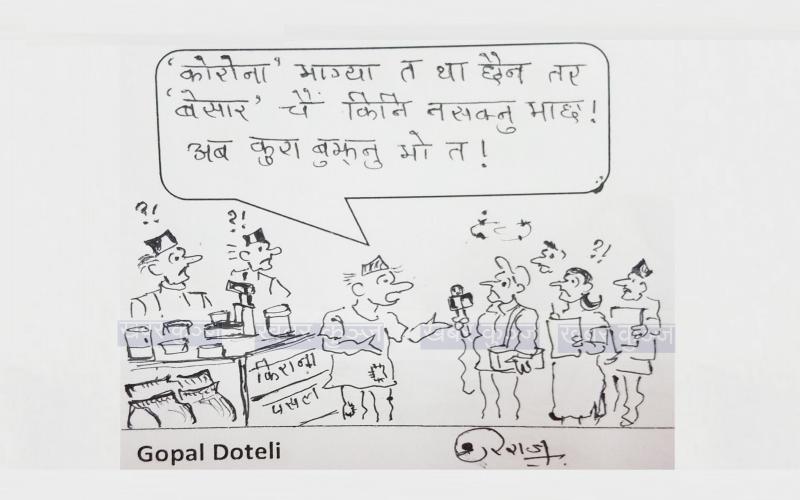 'कोरोना' भाग्या त था छैन तर
'बेसार' चैं किनि नसक्नु भाछ !
अब कुरा बुझ्नु भो त !
?!
?!
?!
किराना
पसल
Gopal Doteli